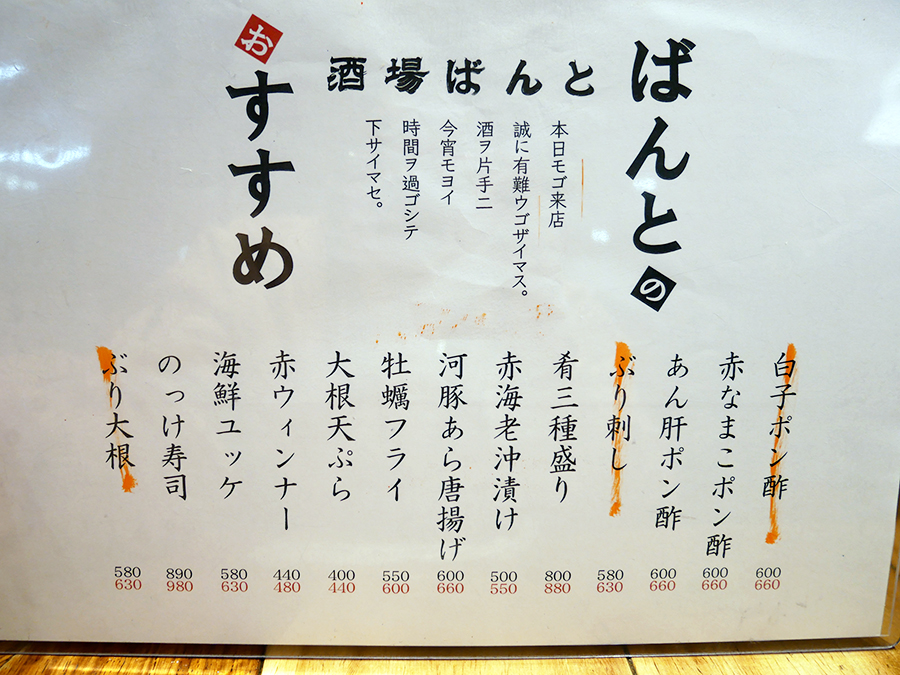 ばんとの
酒場ばんと
本日モゴ来店
誠に有難ウゴザイマス。
酒ヲ片手ニ
今宵モヨイ
時間ヲ過ゴシテ
下サイマセ。
おすすめ
白子ポン酢 600 660
赤なまこポン酢 600 660
あん肝ポン酢 600 660
ぶり刺し 580 630
肴三種盛り 800 880
赤海老沖漬け 500 550
河豚あら唐揚げ 600 660
牡蠣フライ 550 600
大根天ぷら 400 440
赤ウィンナー 440 480
海鮮ユッケ 580 630
のっけ寿司 890 980
ぶり大根 580 630